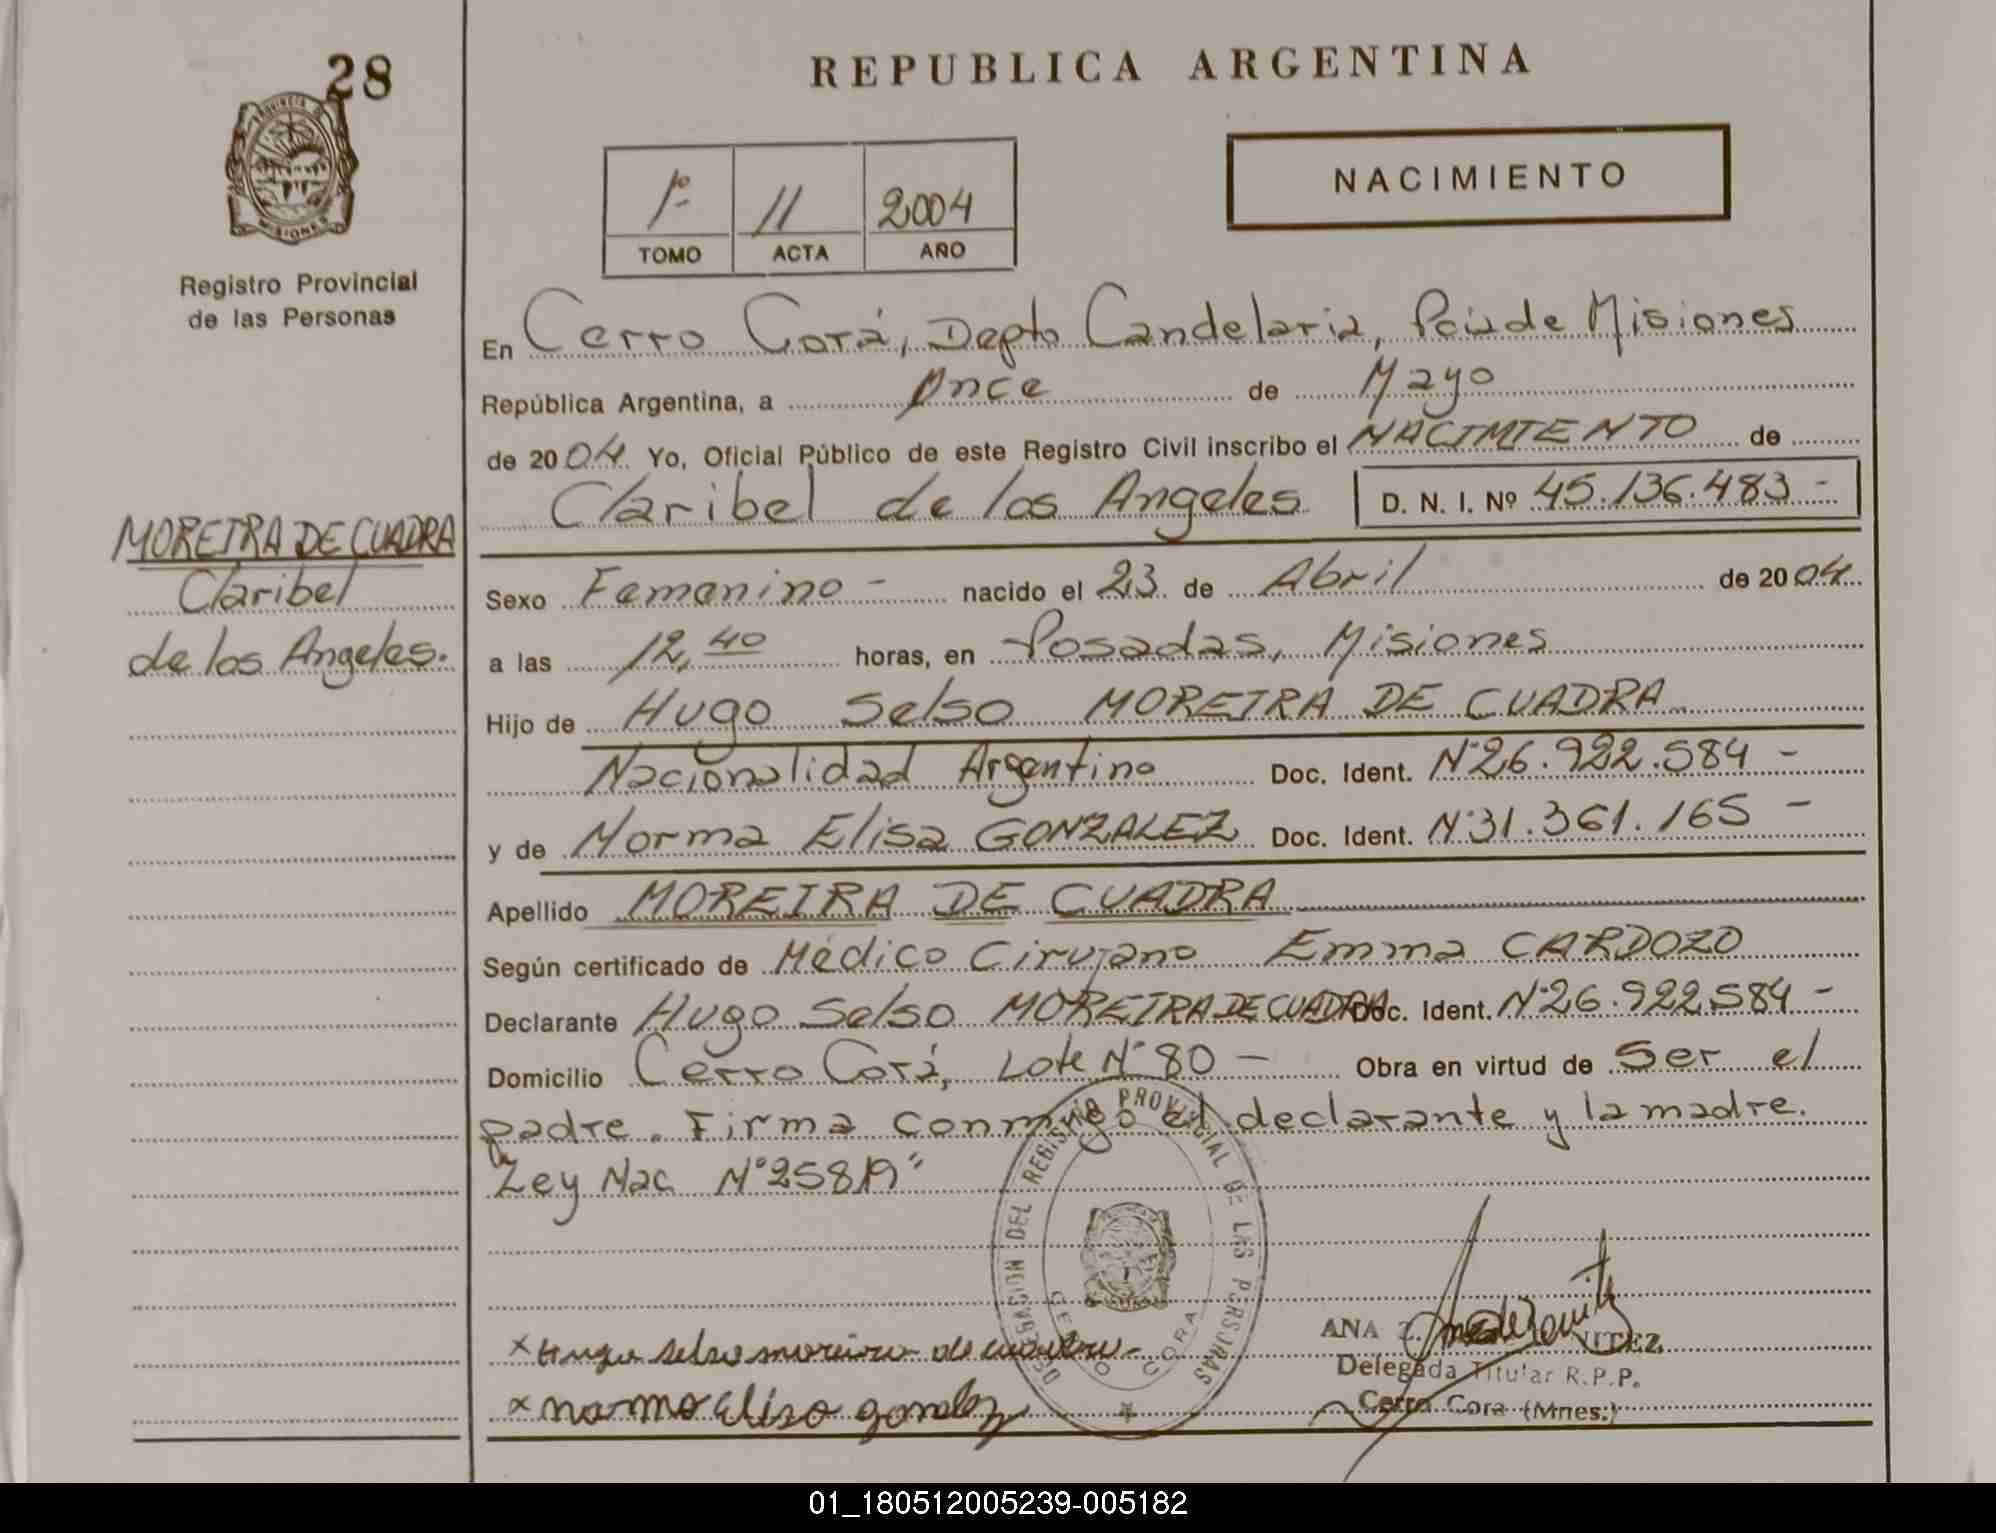 28
REPUBLICA ARGENTINA
PROVINCIA DE
MISIONES
NACIMIENTO
1º 11 2004
TOMO ACTA AÑO
Registro Provincial
de las Personas
En Cerro Corá, Depto Candelaria, Pcia de Misiones
República Argentina, a Once de Mayo
de 2004 Yo, Oficial Público de este Registro Civil inscribo el NACIMIENTO de
Claribel de los Angeles D. N. I. Nº 45.136.483 -
MOREIRA DE CUADRA
Claribel
de los Angeles.
Sexo Femenino - nacido el 23 de Abril de 2004
a las 12,40 horas, en Posadas, Misiones
Hijo de Hugo Selso MOREIRA DE CUADRA
Nacionalidad Argentino Doc. Ident. Nº 26.922.584 -
y de Norma Elisa GONZALEZ Doc. Ident. Nº 31.361.165 -
Apellido MOREIRA DE CUADRA
Según certificado de Médico Cirujano Emma CARDOZO
Declarante Hugo Selso MOREIRA DE CUADRA Doc. Ident. Nº 26.922.584 -
Domicilio Cerro Corá, Lote Nº 80 - Obra en virtud de Ser el
padre. Firma conmigo el declarante y la madre.
"Ley Nac Nº 25819"
DELEGACION DEL REGISTRO PROVINCIAL DE LAS PERSONAS
CERRO CORA
x Hugo selso moreira de cuadra
x norma Elisa gonzalez
ANA
Delegada Titular R.P.P.
Cerro Cora (Mnes.)
01_180512005239-005182